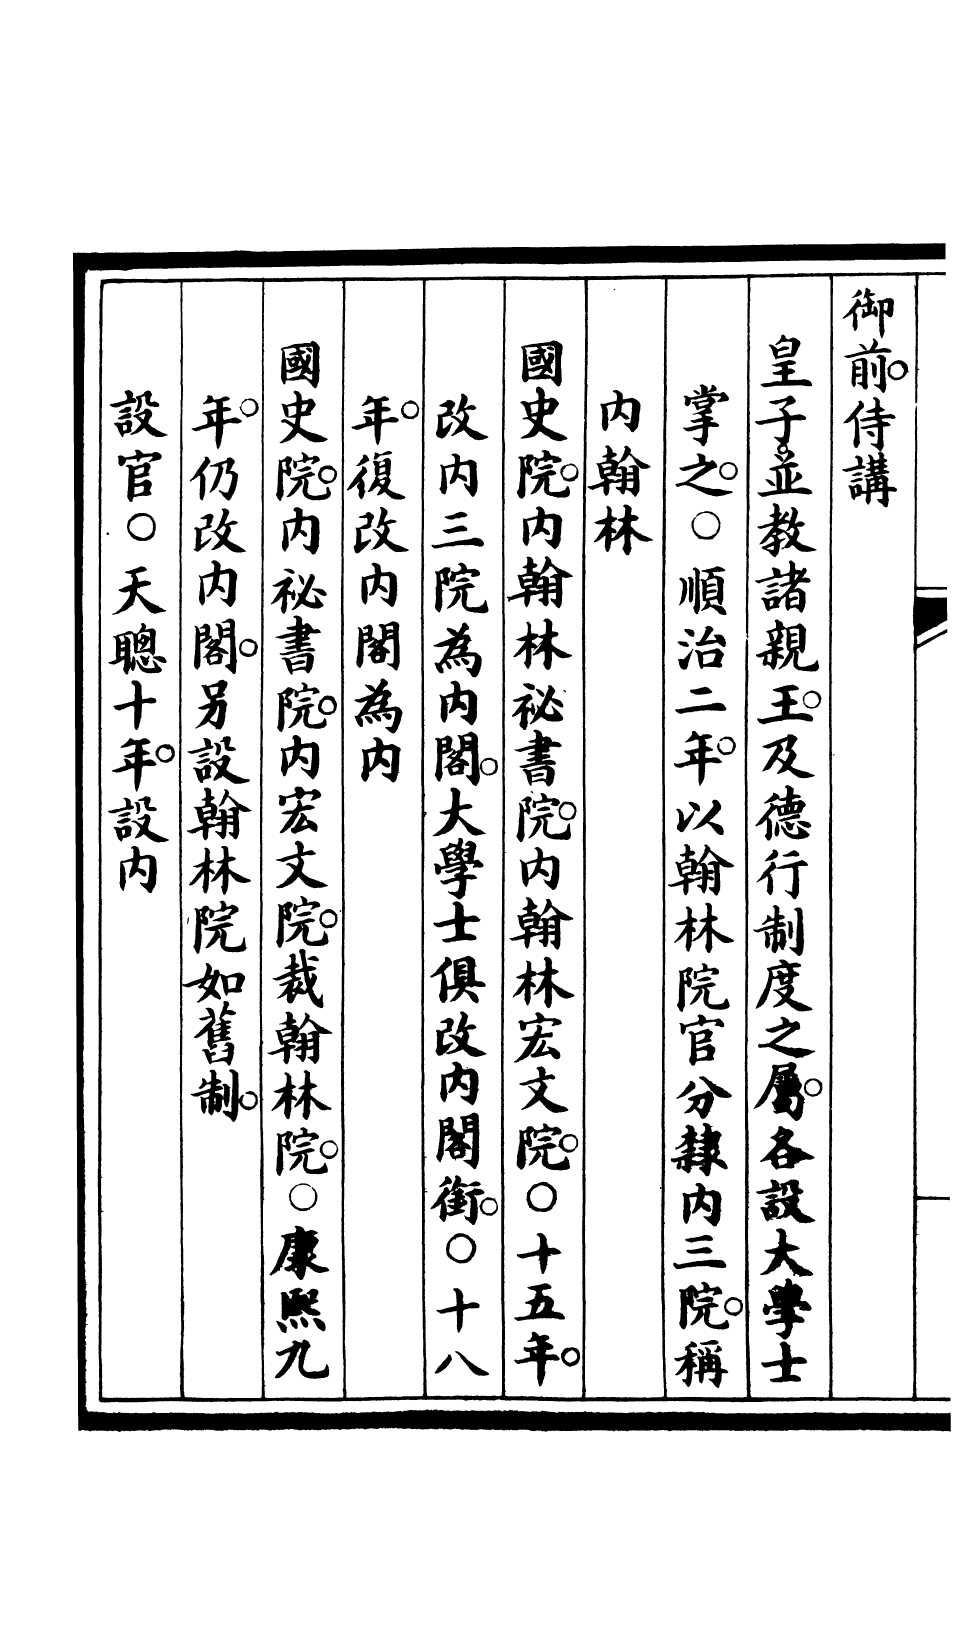 御前。侍講
皇子。並教諸親王。及德行制度之屬。各設大學士
掌之。○順治二年。以翰林院官分隸内三院。稱
内翰林
國史院。内翰林祕書院。内翰林宏文院。○十五年。
改内三院為内閣。大學士俱改内閣銜。○十八
年。復改内閣為内
國史院。内祕書院。内宏文院。裁翰林院。○康熙九
年。仍改内閣。另設翰林院如舊制。
設官○天聰十年。設内